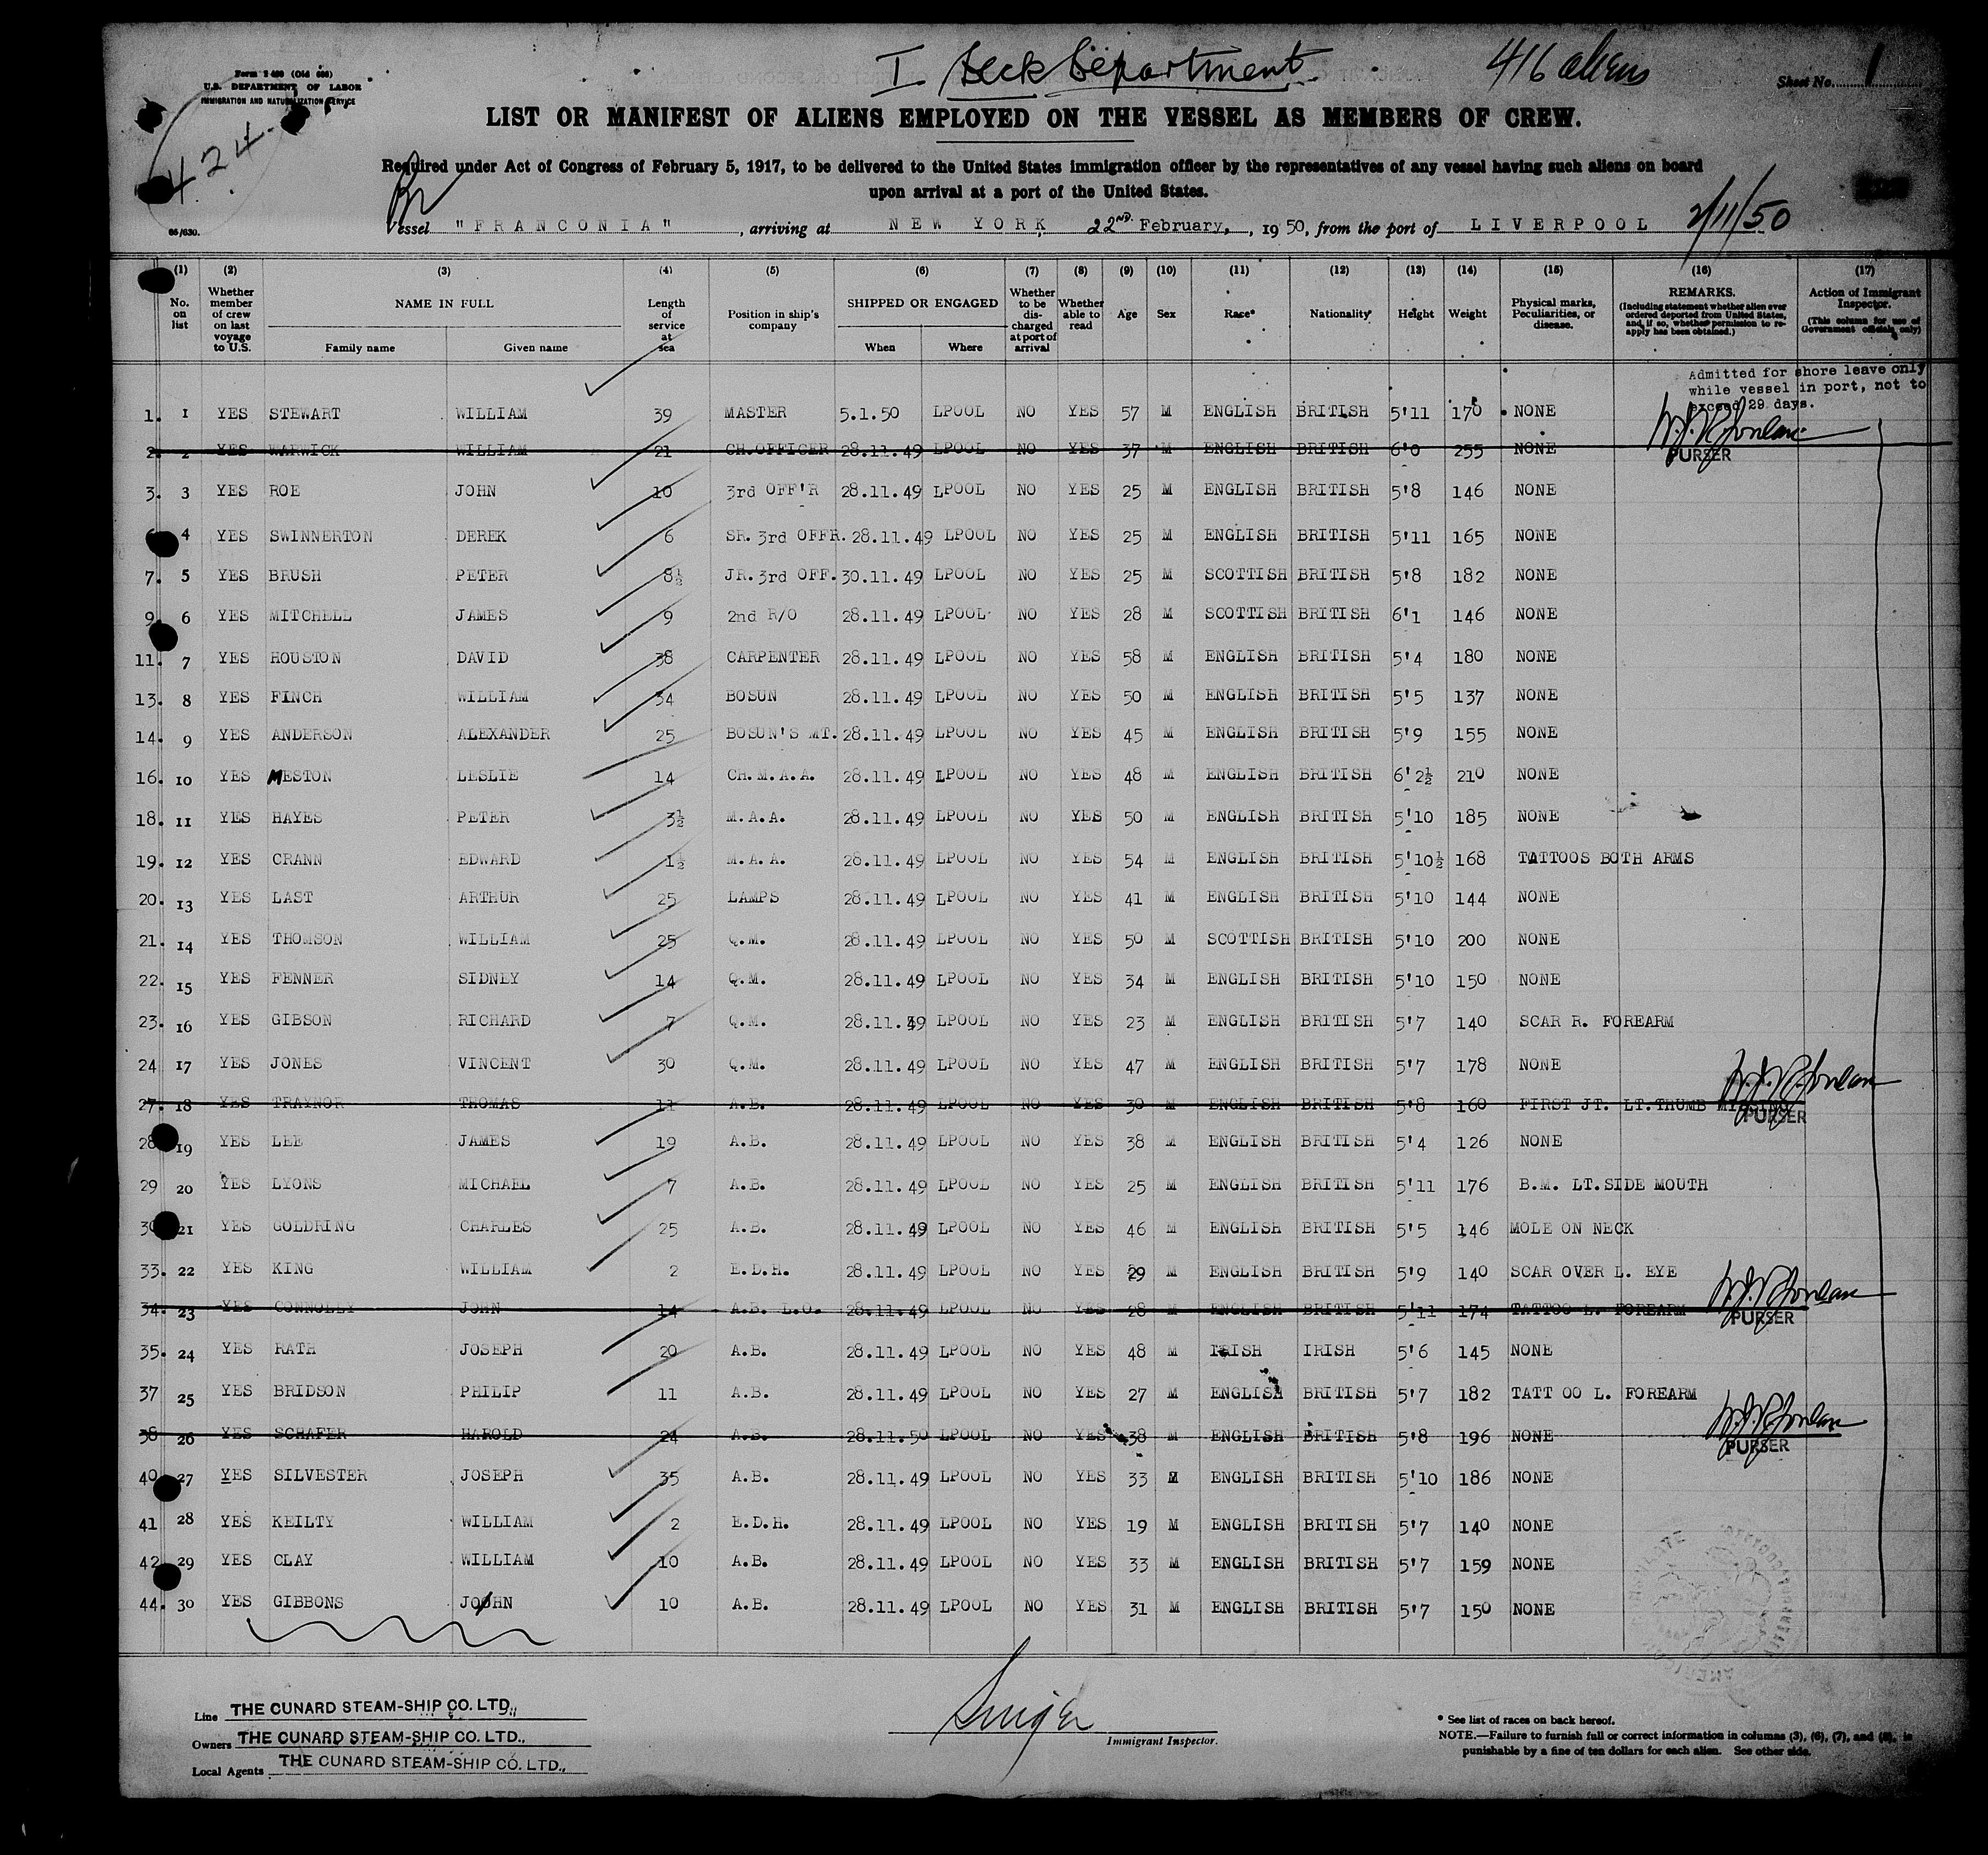 I Deck Department.
416 aliens
Sheet No. 1
Form I 480 (Old 686)
U.S. DEPARTMENT OF LABOR
IMMIGRATION AND NATURALIZATION SERVICE
424
LIST OR MANIFEST OF ALIENS EMPLOYED ON THE VESSEL AS MEMBERS OF CREW.
Required under Act of Congress of February 5, 1917, to be delivered to the United States immigration officer by the representatives of any vessel having such aliens on board
upon arrival at a port of the United States.
Br
86/630.
Vessel "FRANCONIA", arriving at NEW YORK, 22ND. February, , 1950, from the port of LIVERPOOL 2/11/50
(1) (2) (3) (4) (5) (6) (7) (8) (9) (10) (11) (12) (13) (14) (15) (16) (17)
No. on list
Whether member of crew on last voyage to U.S.
NAME IN FULL
Family name Given name
Length of service at sea
Position in ship's company
SHIPPED OR ENGAGED
When Where
Whether to be discharged at port of arrival
Whether able to read
Age
Sex
Race*
Nationality
Height
Weight
Physical marks, Peculiarities, or disease.
REMARKS.
(Including statement whether alien ever ordered deported from United States, and, if so, whether permission to reapply has been obtained.)
Action of Immigrant Inspector.
(This column for use of Government officials only)
Admitted for shore leave only
while vessel in port, not to
exceed 29 days.
1. 1 YES STEWART WILLIAM 39 MASTER 5.1.50 LPOOL NO YES 57 M ENGLISH BRITISH 5'11 170 NONE
2. 2 YES WARWICK WILLIAM 21 CH.OFFICER 28.11.49 LPOOL NO YES 37 M ENGLISH BRITISH 6'0 255 NONE
PURSER
3. 3 YES ROE JOHN 10 3rd OFF'R 28.11.49 LPOOL NO YES 25 M ENGLISH BRITISH 5'8 146 NONE
4 YES SWINNERTON DEREK 6 SR. 3rd OFFR. 28.11.49 LPOOL NO YES 25 M ENGLISH BRITISH 5'11 165 NONE
7. 5 YES BRUSH PETER 8½ JR. 3rd OFF. 30.11.49 LPOOL NO YES 25 M SCOTTISH BRITISH 5'8 182 NONE
9. 6 YES MITCHELL JAMES 9 2nd R/O 28.11.49 LPOOL NO YES 28 M SCOTTISH BRITISH 6'1 146 NONE
11. 7 YES HOUSTON DAVID 38 CARPENTER 28.11.49 LPOOL NO YES 58 M ENGLISH BRITISH 5'4 180 NONE
13. 8 YES FINCH WILLIAM 34 BOSUN 28.11.49 LPOOL NO YES 50 M ENGLISH BRITISH 5'5 137 NONE
14. 9 YES ANDERSON ALEXANDER 25 BOSUN'S MT. 28.11.49 LPOOL NO YES 45 M ENGLISH BRITISH 5'9 155 NONE
16. 10 YES MESTON LESLIE 14 CH.M.A.A. 28.11.49 LPOOL NO YES 48 M ENGLISH BRITISH 6'2½ 210 NONE
18. 11 YES HAYES PETER 3½ M.A.A. 28.11.49 LPOOL NO YES 50 M ENGLISH BRITISH 5'10 185 NONE
19. 12 YES CRANN EDWARD 1½ M.A.A. 28.11.49 LPOOL NO YES 54 M ENGLISH BRITISH 5'10½ 168 TATTOOS BOTH ARMS
20. 13 YES LAST ARTHUR 25 LAMPS 28.11.49 LPOOL NO YES 41 M ENGLISH BRITISH 5'10 144 NONE
21. 14 YES THOMSON WILLIAM 25 Q.M. 28.11.49 LPOOL NO YES 50 M SCOTTISH BRITISH 5'10 200 NONE
22. 15 YES FENNER SIDNEY 14 Q.M. 28.11.49 LPOOL NO YES 34 M ENGLISH BRITISH 5'10 150 NONE
23. 16 YES GIBSON RICHARD 7 Q.M. 28.11.49 LPOOL NO YES 23 M ENGLISH BRITISH 5'7 140 SCAR R. FOREARM
24 17 YES JONES VINCENT 30 Q.M. 28.11.49 LPOOL NO YES 47 M ENGLISH BRITISH 5'7 178 NONE
27. 18 YES TRAYNOR THOMAS 11 A.B. 28.11.49 LPOOL NO YES 30 M ENGLISH BRITISH 5'8 160 FIRST JT. LT.THUMB MISSING
PURSER
28 19 YES LEE JAMES 19 A.B. 28.11.49 LPOOL NO YES 38 M ENGLISH BRITISH 5'4 126 NONE
29 20 YES LYONS MICHAEL 7 A.B. 28.11.49 LPOOL NO YES 25 M ENGLISH BRITISH 5'11 176 B.M. LT.SIDE MOUTH
30 21 YES GOLDRING CHARLES 25 A.B. 28.11.49 LPOOL NO YES 46 M ENGLISH BRITISH 5'5 146 MOLE ON NECK
33. 22 YES KING WILLIAM 2 E.D.H. 28.11.49 LPOOL NO YES 29 M ENGLISH BRITISH 5'9 140 SCAR OVER L. EYE
34. 23 YES CONNOLLY JOHN 14 A.B. L.O. 28.11.49 LPOOL NO YES 28 M ENGLISH BRITISH 5'11 174 TATTOO L. FOREARM
PURSER
35. 24 YES RATH JOSEPH 20 A.B. 28.11.49 LPOOL NO YES 48 M IRISH IRISH 5'6 145 NONE
37 25 YES BRIDSON PHILIP 11 A.B. 28.11.49 LPOOL NO YES 27 M ENGLISH BRITISH 5'7 182 TATT OO L. FOREARM
38 26 YES SCHAFER HAROLD 24 A.B. 28.11.50 LPOOL NO YES 38 M ENGLISH BRITISH 5'8 196 NONE
PURSER
40 27 YES SILVESTER JOSEPH 35 A.B. 28.11.49 LPOOL NO YES 33 M ENGLISH BRITISH 5'10 186 NONE
41 28 YES KEILTY WILLIAM 2 E.D.H. 28.11.49 LPOOL NO YES 19 M ENGLISH BRITISH 5'7 140 NONE
42 29 YES CLAY WILLIAM 10 A.B. 28.11.49 LPOOL NO YES 33 M ENGLISH BRITISH 5'7 159 NONE
44. 30 YES GIBBONS JOHN 10 A.B. 28.11.49 LPOOL NO YES 31 M ENGLISH BRITISH 5'7 150 NONE
Line THE CUNARD STEAM-SHIP CO. LTD.,
Owners THE CUNARD STEAM-SHIP CO. LTD.,
Local Agents THE CUNARD STEAM-SHIP CO. LTD.,
Immigrant Inspector.
* See list of races on back hereof.
NOTE.—Failure to furnish full or correct information in columns (3), (6), (7), and (8), is
punishable by a fine of ten dollars for each alien. See other side.